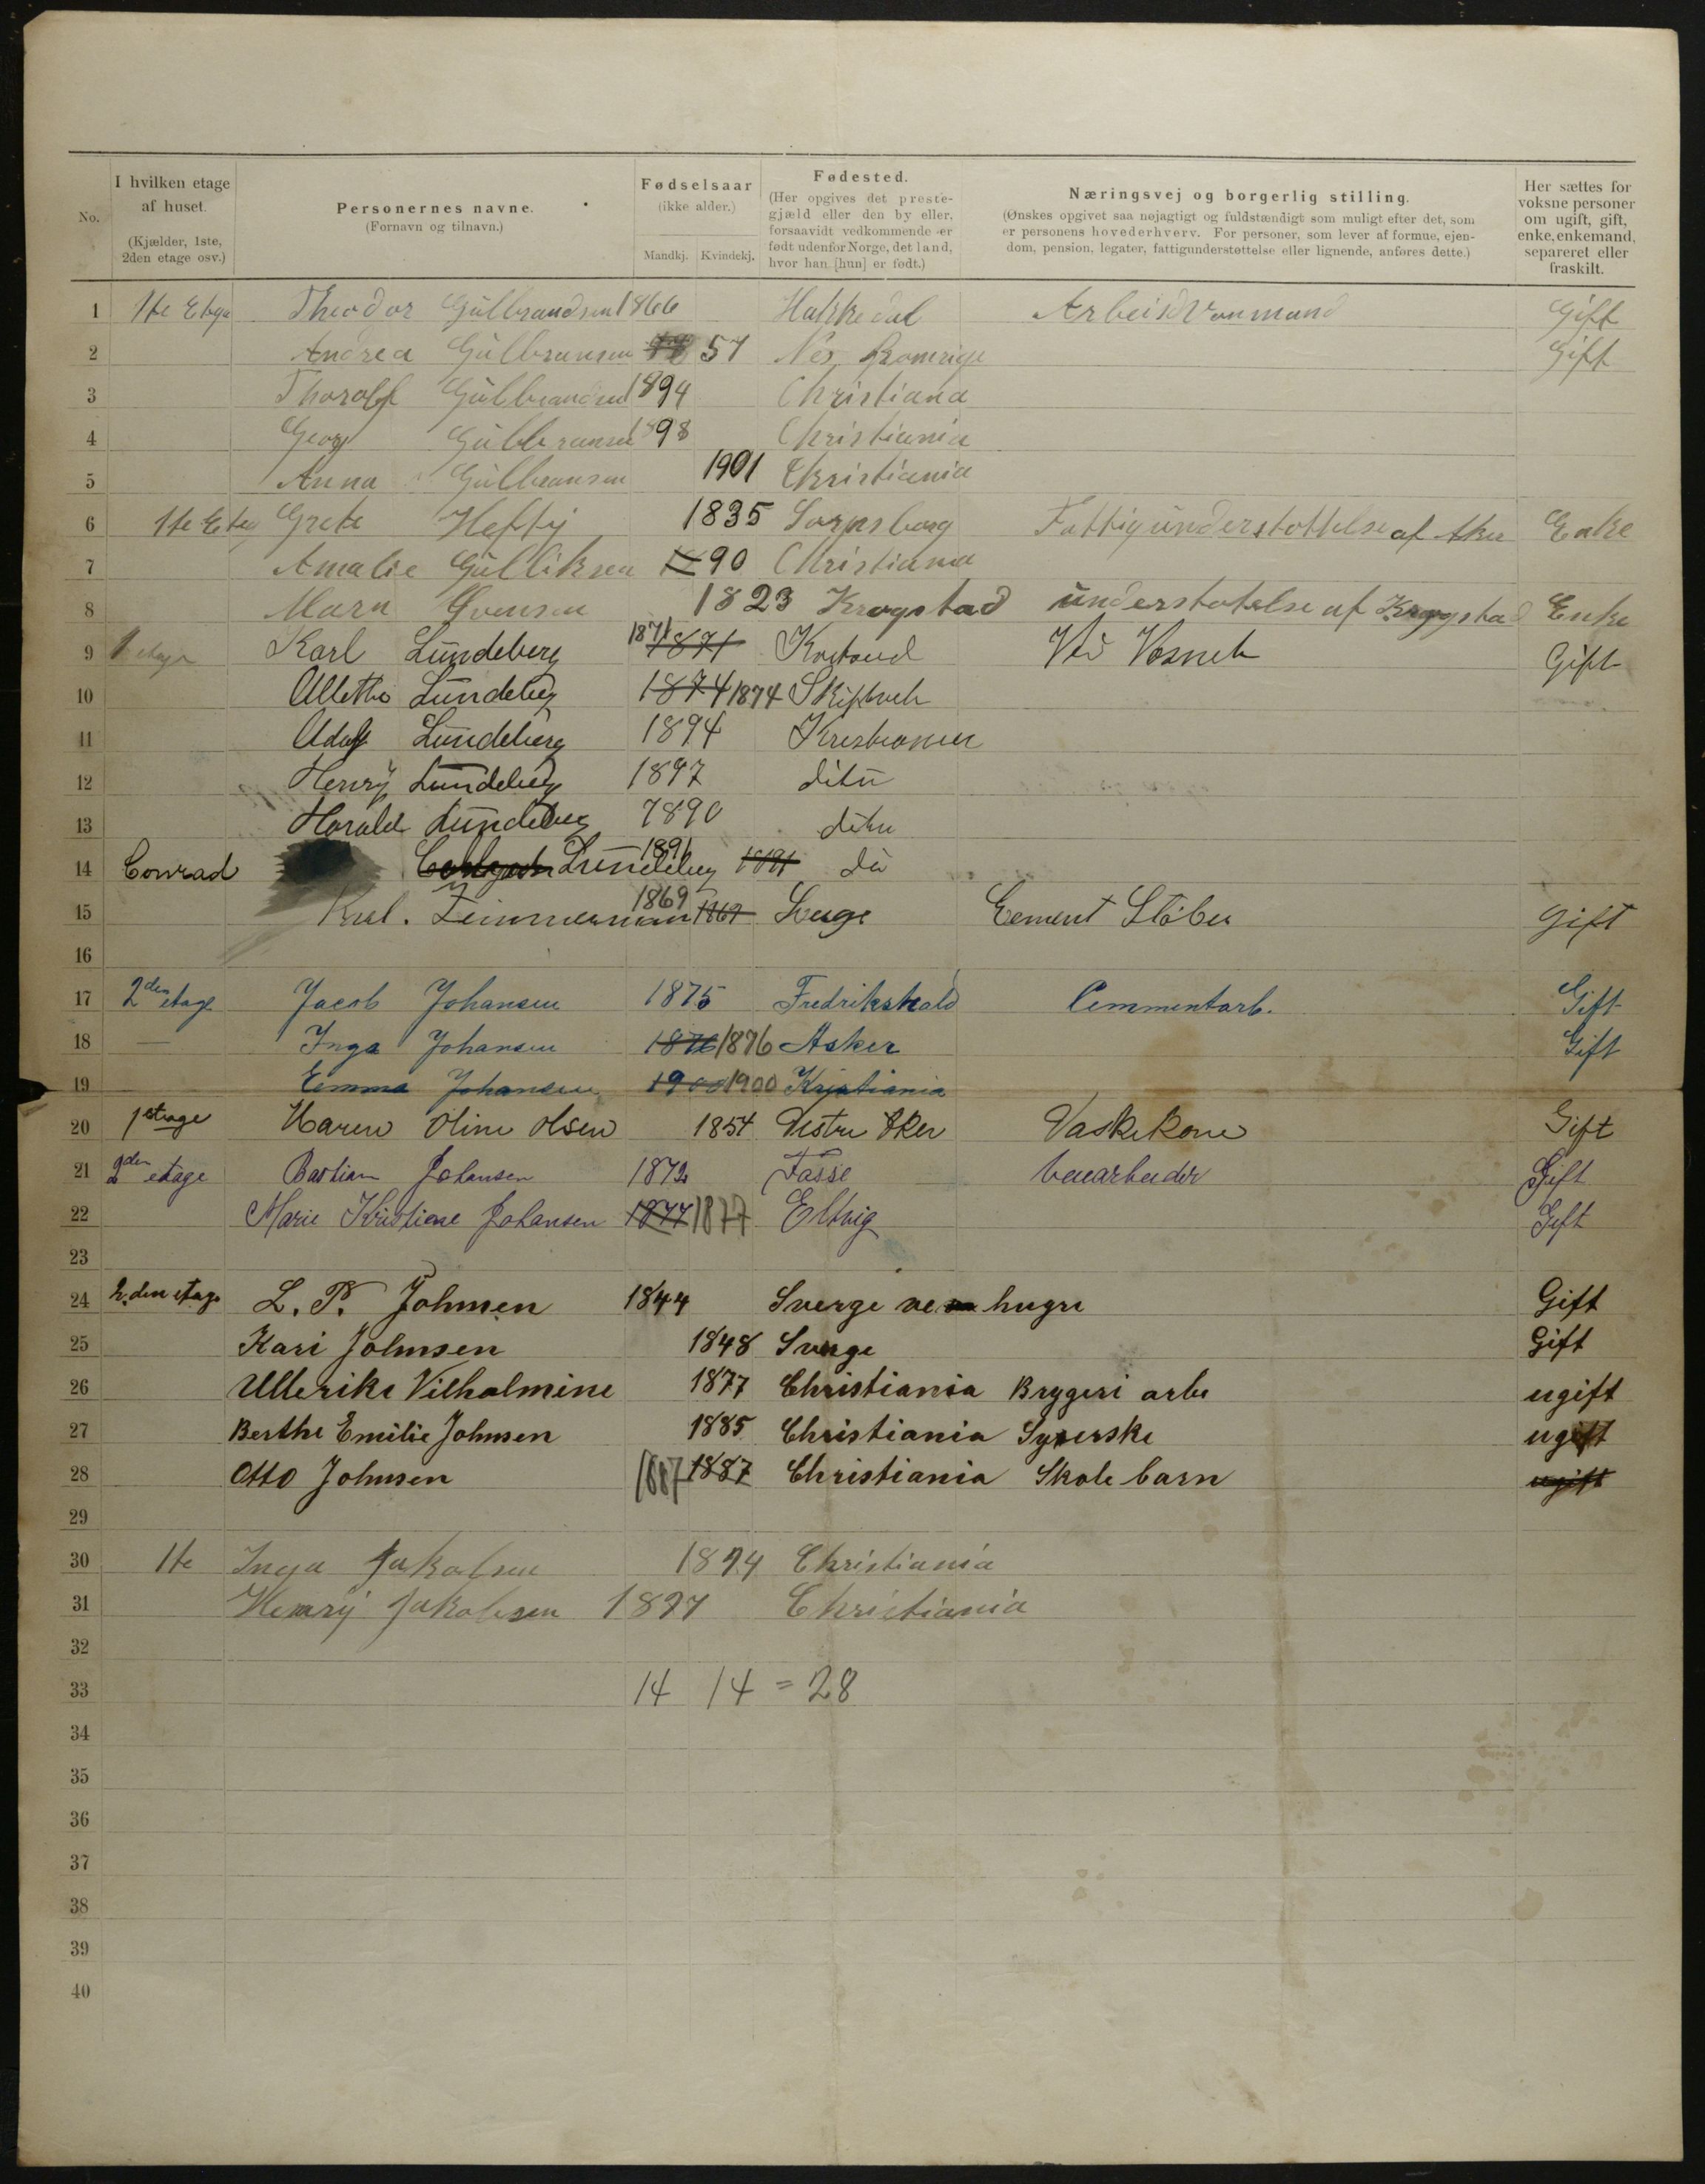 No.
I hvilken etage af huset. (Kjælder, 1ste, 2den etage osv.)
Personernes navne. (Fornavn og tilnavn.)
Fødselsaar (ikke alder.) Mandkj. Kvindekj.
Fødested. (Her opgives det prestegjæld eller den by eller, forsaavidt vedkommende er født udenfor Norge, det land, hvor han [hun] er født.)
Næringsvej og borgerlig stilling. (Ønskes opgivet saa nøjagtigt og fuldstændigt som muligt efter det, som er personens hovederhverv. For personer, som lever af formue, ejendom, pension, legater, fattigunderstøttelse eller lignende, anføres dette.)
Her sættes for voksne personer om ugift, gift, enke, enkemand, separeret eller fraskilt.
1 1te Etage Theodor Gulbrandsen 1866 Hakkedal Gift
2 Andrea Gulbransen 57 Nes Romerige Gift
3 Thorolf Gulbrandsen 1894 Christiana
4 Georg Gulbransen 1898 Christiania
5 Anna Gulbransen 1901 Christiania
6 1te Etag Grete Heftij 1835 Sarpsborg Fattigunderstottelse af Aker Enke
7 Amalie Gulliksen 90 Christiana
8 Marn Svensen 1823 Krogstad understotelse af Krogstad Enke
9 1 etage Karl Lundeberg 1871 1871 Gift
10 Lundeberg 1874 1874
11 Adolf Lundeberg 1894
12 Henry Lundeberg 1897 dito
13 Harald Lundeberg 1890 dito
14 Conrad Lundeberg 1891 1891 do
15 Karl. Zimmerman 1869 1869 Sverge Cement Stöber Gift
16
17 2den etage Jacob Johansen 1875 Fredrikshald Cemmentarb. Gift
18 — Inga Johansen 1876 1876 Asker Gift
19 Emma Johansen 1900 1900 Kristiania
20 1 etage Maren Oline Olsen 1854 Vestre Aker Vaskekone Gift
21 2den etage Bastian Johansen 1872 Gift
22 Marie Kristiane Johansen 1877 1877 Gift
23
24 2.den etage L. P. Johnsen 1844 Sverge Gift
25 Kari Johnsen 1848 Sverge Gift
26 Ullerike Vilhalmine 1877 Christiania Brygeri arbe ugift
27 Berthe Emilie Johnsen 1885 Christiania Syerske ugift
28 Otto Johnsen 1887 1887 Christiania Skolebarn ugift
29
30 1te Inga Jakobsen 1894 Christiania
31 Henrij Jakobsen 1897 Christiania
32
33 14 14 = 28
34
35
36
37
38
39
40